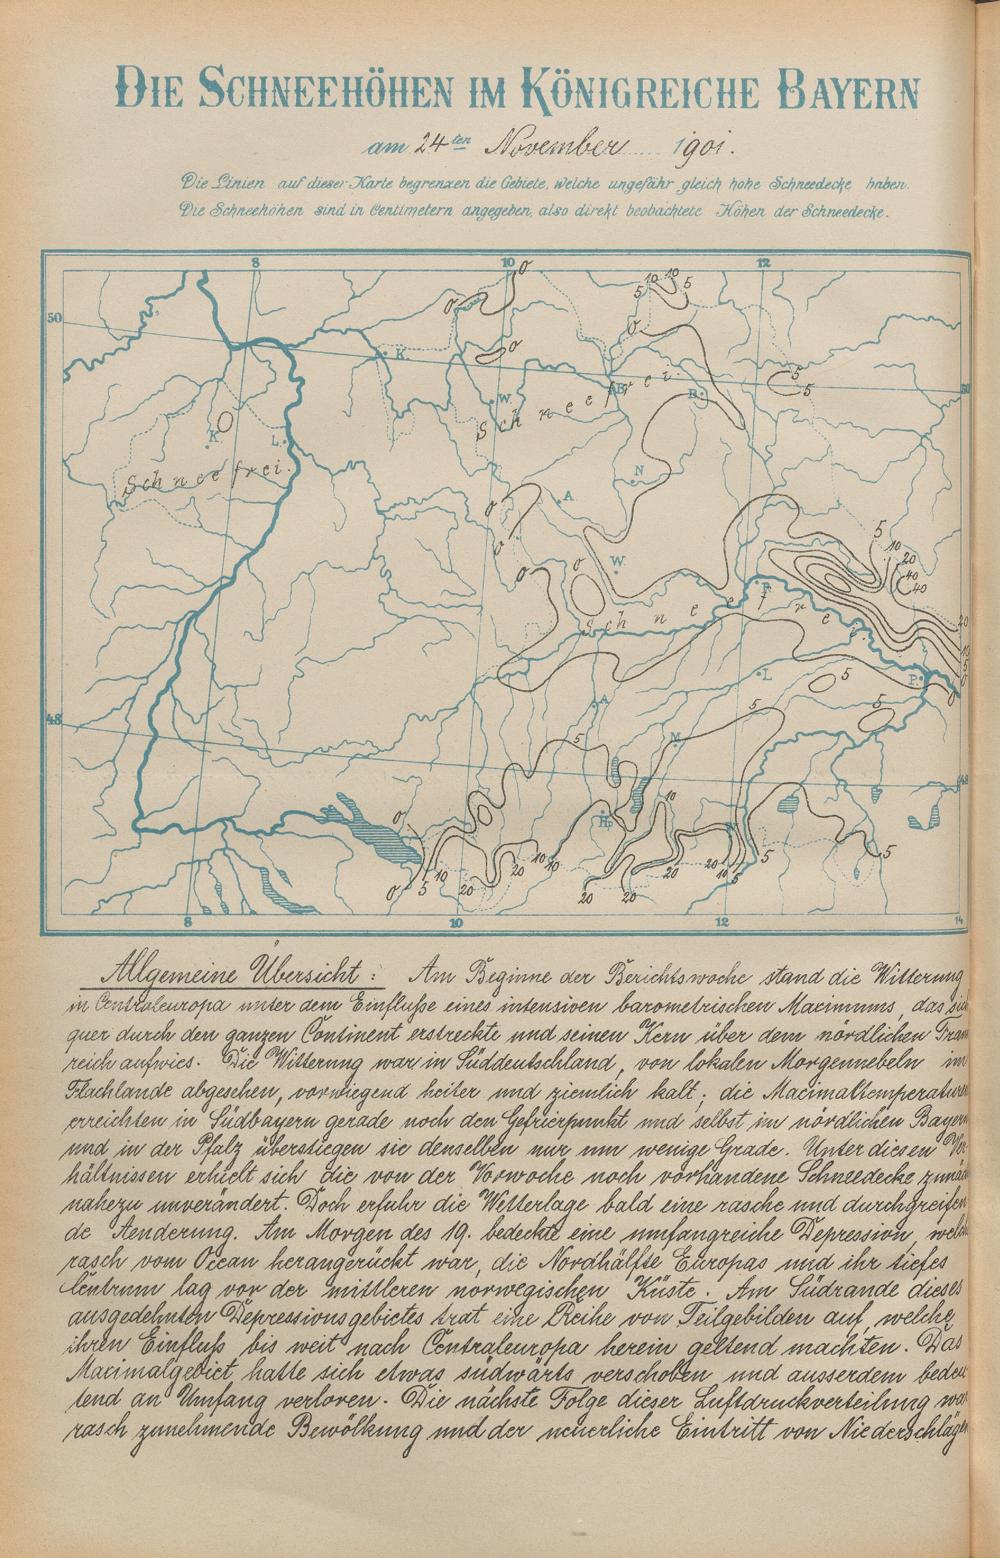 DIE SCHNEEHÖHEN IM KÖNIGREICHE BAYERN
am 24ten November 1901.
Die Linien auf dieser Karte begrenzen die Gebiete, welche ungefähr gleich hohe Schneedecke haben.
Die Schneehöhen sind in Centimetern angegeben, also direkt beobachtete Höhen der Schneedecke.
8 10 12
0 5 10 10 5
0
50
0
0
K.
5
5
50
W.
B.
B.
Schneefrei.
K.
L.
Schneefrei.
N
0
A.
0
5
10
20
40
40
W.
0
0
R.
Schneefrei.
20
10
5
0
L.
5
P.
0
A.
5
5
48
M.
5
48
10
H.
0
5
0 5 10 20 20 10 10 20 20 20 20 10 5 5
8 10 12 14
Allgemeine Übersicht: Am Beginne der Berichtswoche stand die Witterung
in Centraleuropa unter dem Einfluße eines intensiven barometrischen Maximums, das sich
quer durch den ganzen Continent erstreckte und seinen Kern über dem nördlichen Frank
reich aufwies. Die Witterung war in Süddeutschland, von lokalen Morgennebeln im
Flachlande abgesehen, vorwiegend heiter und ziemlich kalt; die Maximaltemperaturen
erreichten in Südbayern gerade noch den Gefrierpunkt und selbst im nördlichen Bayern
und in der Pfalz überstiegen sie denselben nur um wenige Grade. Unter diesen Ver
hältnissen erhielt sich die von der Vorwoche noch vorhandene Schneedecke zunäc
nahezu unverändert. Doch erfuhr die Wetterlage bald eine rasche und durchgreifen
de Aenderung. Am Morgen des 19. bedeckte eine umfangreiche Depression, welche
rasch vom Ocean herangerückt war, die Nordhälfte Europas und ihr tiefes
Centrum lag vor der mittleren norwegischen Küste. Am Südrande dieses
ausgedehnten Depressionsgebietes trat eine Reihe von Teilgebilden auf, welche
ihren Einfluß bis weit nach Centraleuropa herein geltend machten. Das
Maximalgebiet hatte sich etwas südwärts verschoben und ausserdem bedeu
tend an Umfang verloren. Die nächste Folge dieser Luftdruckverteilung war
rasch zunehmende Bewölkung und der neuerliche Eintritt von Niederschlägen